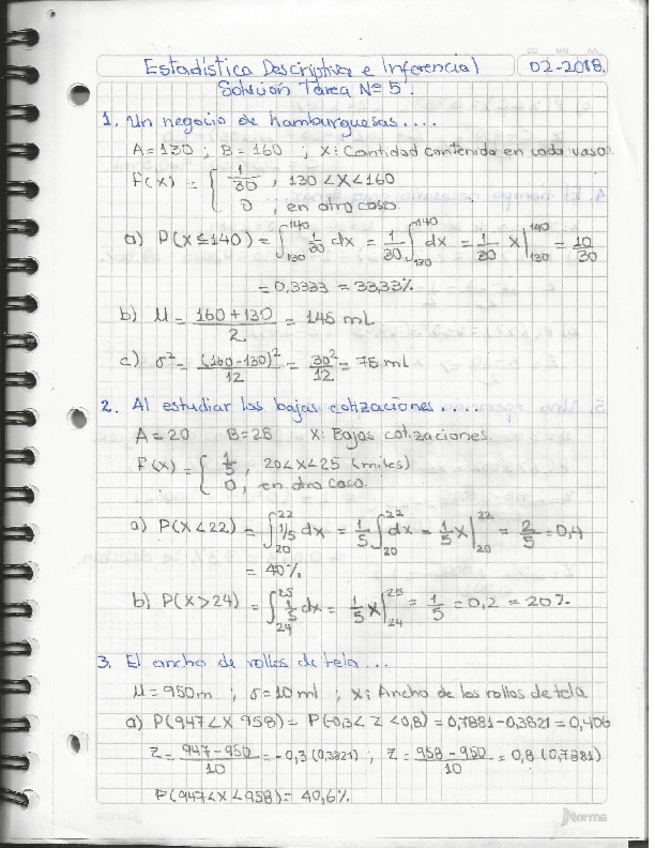 DD MM AA
Estadística Descriptiva e Inferencial 02-2018.
Solución Tarea Nº 5.
1. Un negocio de hamburguesas....
A=130 ; B=160 ; X: Cantidad contenida en cada vaso.
f(x) = { 1/30 , 130<X<160
0 , en otro caso.
a) P(X≤140) = ∫₁₃₀¹⁴⁰ 1/30 dx = 1/30 ∫₁₃₀¹⁴⁰ dx = 1/30 X|₁₃₀¹⁴⁰ = 10/30
= 0,3333 = 33,33%
b) μ = (160+130)/2 = 145 mL
c) σ² = (160-130)²/12 = 30²/12 = 75 mL
2. Al estudiar las bajas cotizaciones.....
A=20 B=25 X: Bajas cotizaciones.
F(x) = { 1/5 , 20<X<25 (miles)
0, en otro caso.
a) P(X<22) = ∫₂₀²² 1/5 dx = 1/5 ∫₂₀²² dx = 1/5 X|₂₀²² = 2/5 = 0,4
= 40%
b) P(X>24) = ∫₂₄²⁵ 1/5 dx = 1/5 X|₂₄²⁵ = 1/5 = 0,2 = 20%
3. El ancho de rollos de tela...
μ=950m ; σ=10ml ; X: Ancho de los rollos de tela
a) P(947<X 958) = P(-0,3<Z<0,8) = 0,7881-0,3821 = 0,406
Z = (947-950)/10 = -0,3 (0,3821) ; Z = (958-950)/10 = 0,8 (0,7881)
P(947<X<958) = 40,6%
Norma